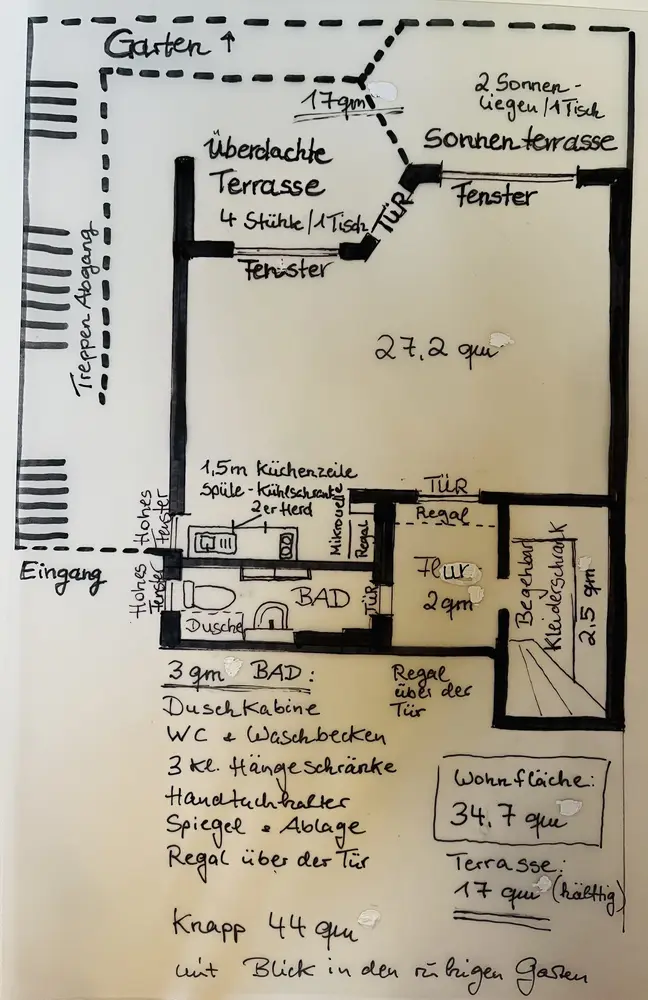 Garten ↑
17qm
2 Sonnen-
liegen/1Tisch
Sonnenterrasse
Überdachte
Terrasse
4 Stühle/1Tisch
TÜR
Fenster
Fenster
Treppen Abgang
27,2 qm
1,5m Küchenzeile
Spüle-Kühlschrank
2er Herd
Mikrowelle
Regal
Hohes
Fenster
TÜR
Regal
Eingang
Hohes
Fenster
BAD
Dusche
TÜR
Flur
2qm
Begehbar
Kleiderschrank
2,5 qm
3 qm BAD:
Duschkabine
WC + Waschbecken
3 kl. Hängeschränke
Handtuchhalter
Spiegel + Ablage
Regal über der Tür
Regal
über der
Tür
Wohnfläche:
34,7 qm
Terrasse:
17 qm (hälftig)
Knapp 44 qm
mit Blick in den ruhigen Garten